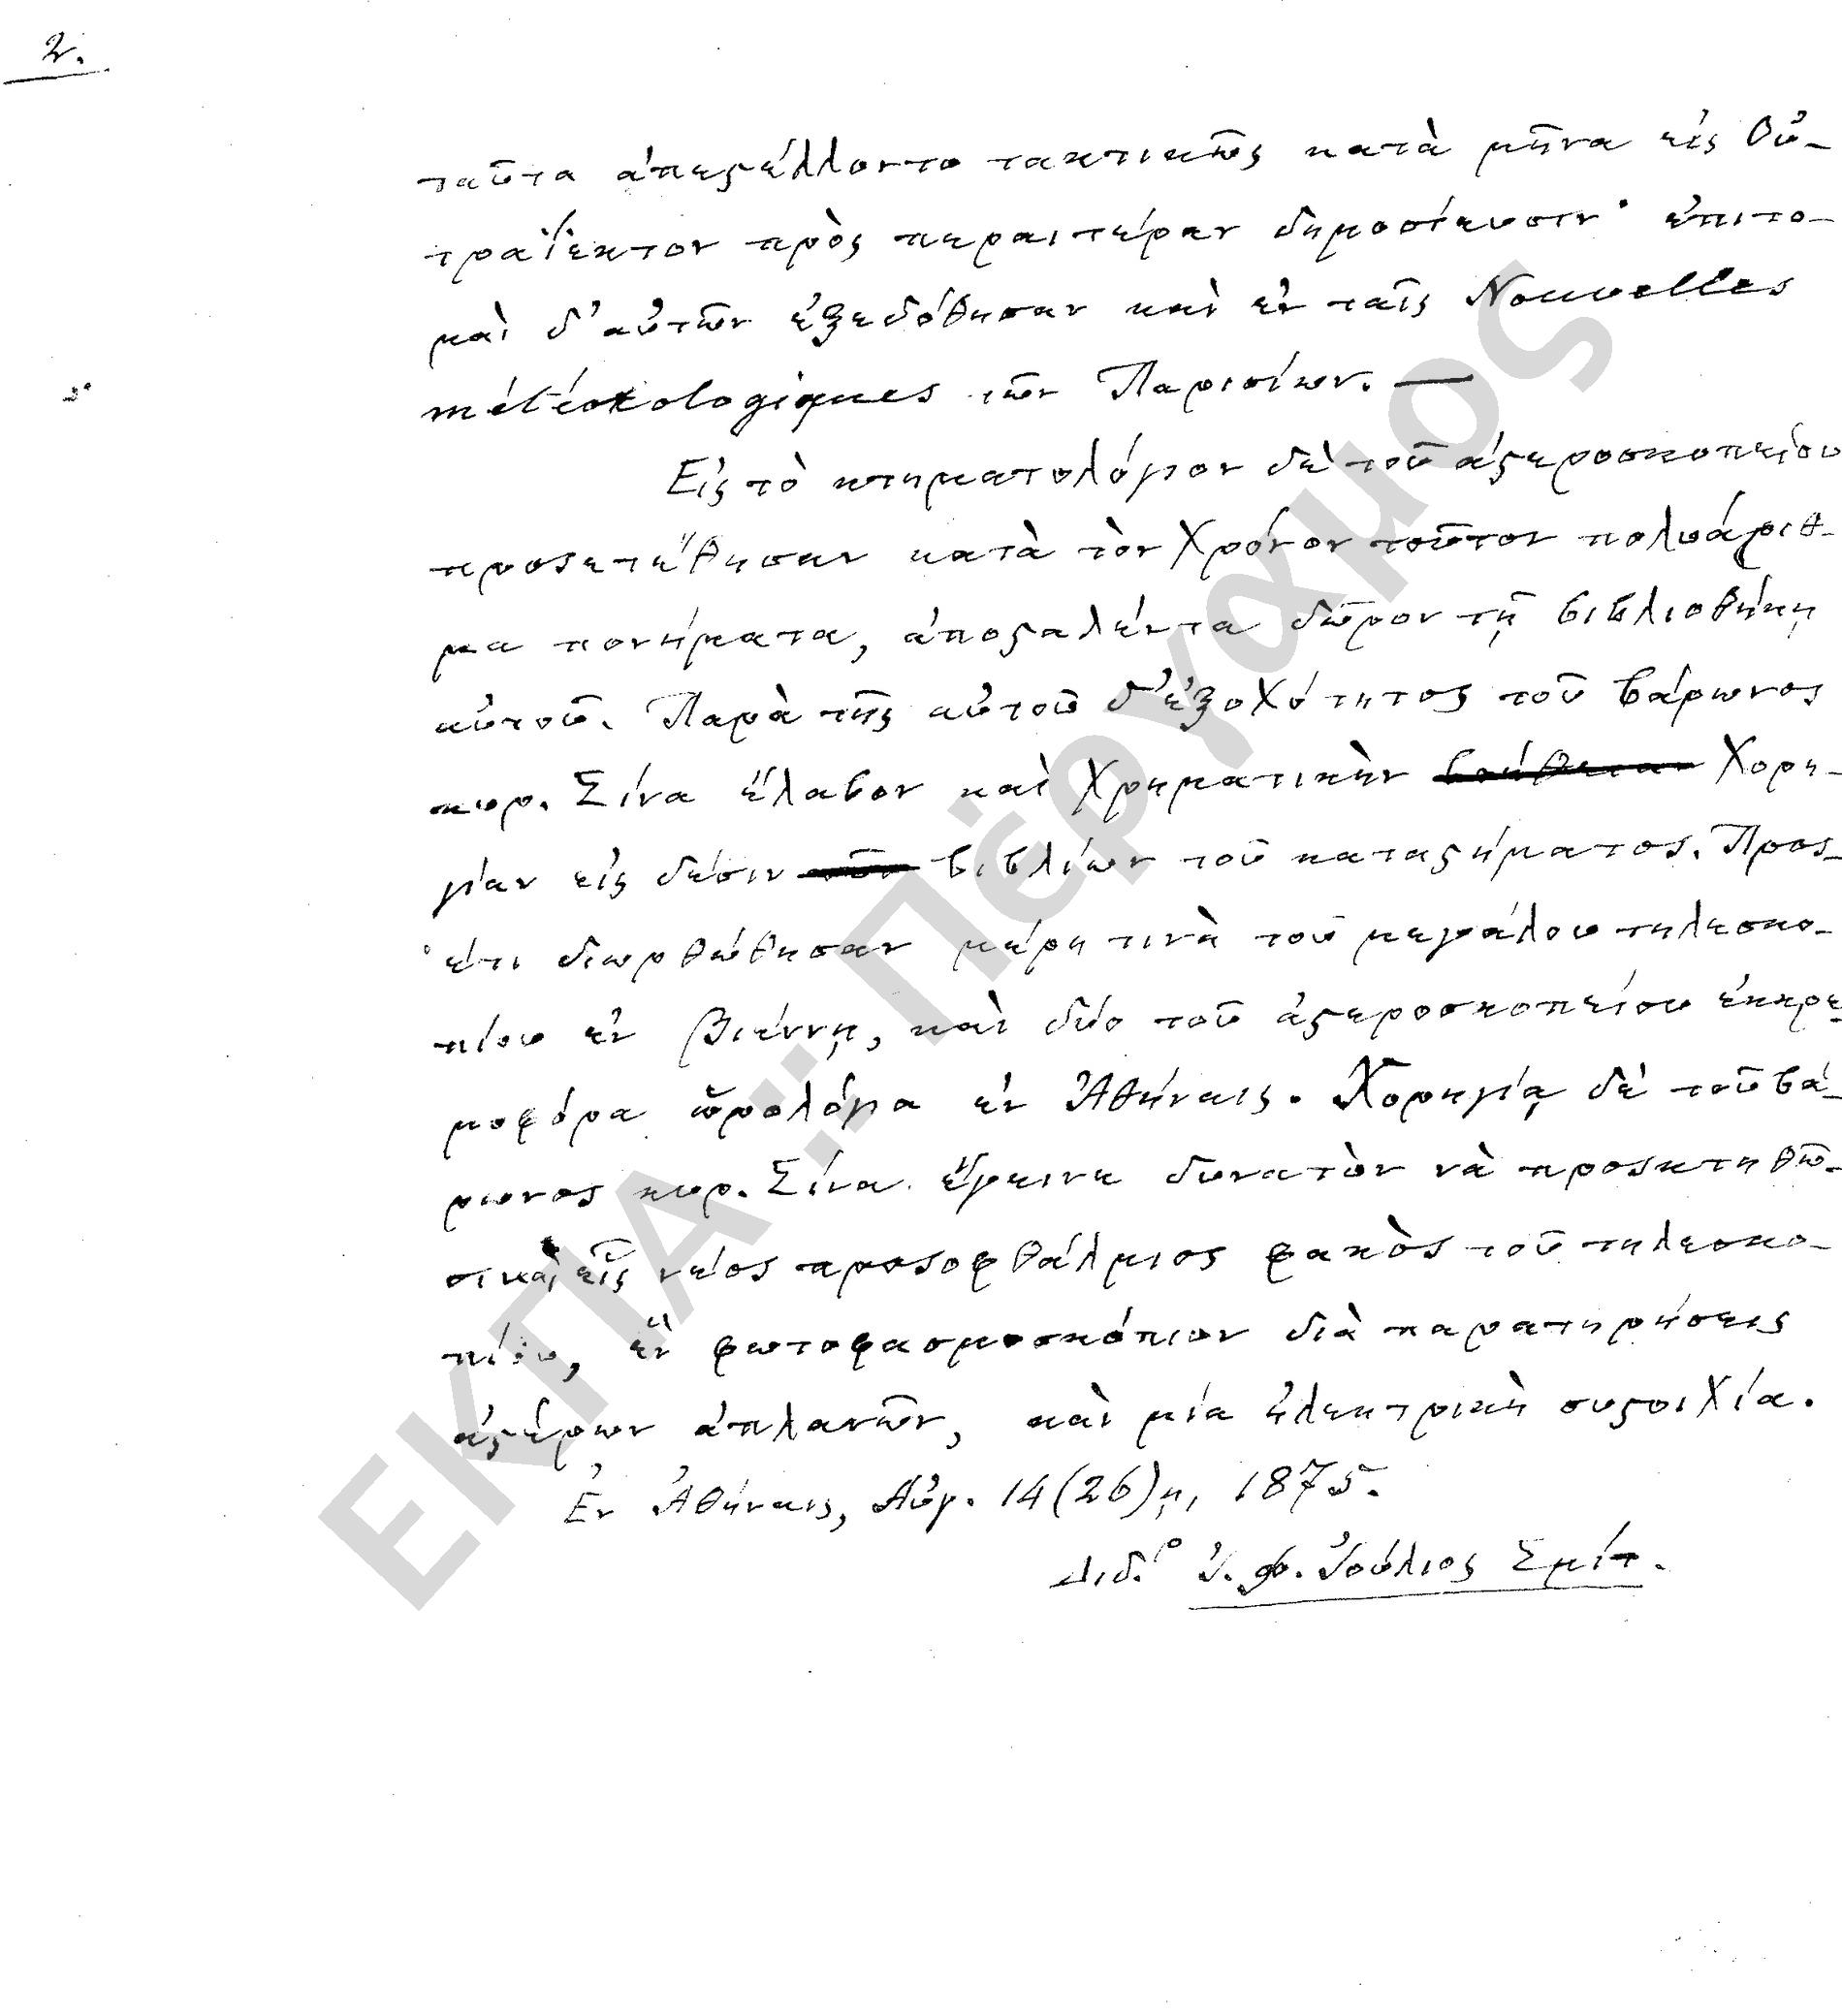 2.
ταῦτα ἀπεςέλλοντο τακτικῶς κατὰ μῆνα εἰς Οὐ-
τραΐεκτον πρὸς περαιτέραν δημοσίευσιν· ἐπιτο-
μαὶ δ' αὐτῶν ἐξεδόθησαν καὶ ἐν ταῖς Nouvelles
météorologiques τῶν Παρισίων. —
Εἰς τὸ κτηματολόγιον δὲ τοῦ ἀςεροσκοπείου
προςετέθησαν κατὰ τὸν χρόνον τοῦτον πολυάριθ-
μα πονήματα, ἀποςαλέντα δῶρον τῇ βιβλιοθήκῃ
αὐτοῦ. Παρὰ τῆς αὐτοῦ δ' ἐξοχότητος τοῦ βάρωνος
κυρ. Σίνα ἔλαβον καὶ χρηματικὴν βοήθειαν χορη-
γίαν εἰς δέσιν τῶν βιβλίων τοῦ καταςήματος. Προς-
έτι διωρθώθησαν μέρη τινὰ τοῦ μεγάλου τηλεσκο-
πίου ἐν Βιέννῃ, καὶ δύο τοῦ ἀςεροσκοπείου ἐκκρε-
μοφόρα ὡρολόγια ἐν Ἀθήναις. Χορηγίᾳ δὲ τοῦ βά-
ρωνος κυρ. Σίνα ἔγεινε δυνατὸν νὰ προςκτηθῶ-
σι καὶ εἷς νέος προςοφθάλμιος φακὸς τοῦ τηλεσκο-
πίου, ἓν φωτοφασμοσκόπιον διὰ παρατηρήσεις
ἀςέρων ἀπλανῶν, καὶ μία ἠλεκτρικὴ συςοιχία.
Ἐν Ἀθήναις, Αὐγ. 14 (26)ῃ, 1875.
Διδ. Ἰ. Φ. Ἰούλιος Σμίτ.
ΕΚΠΑ :: Πέργαμος